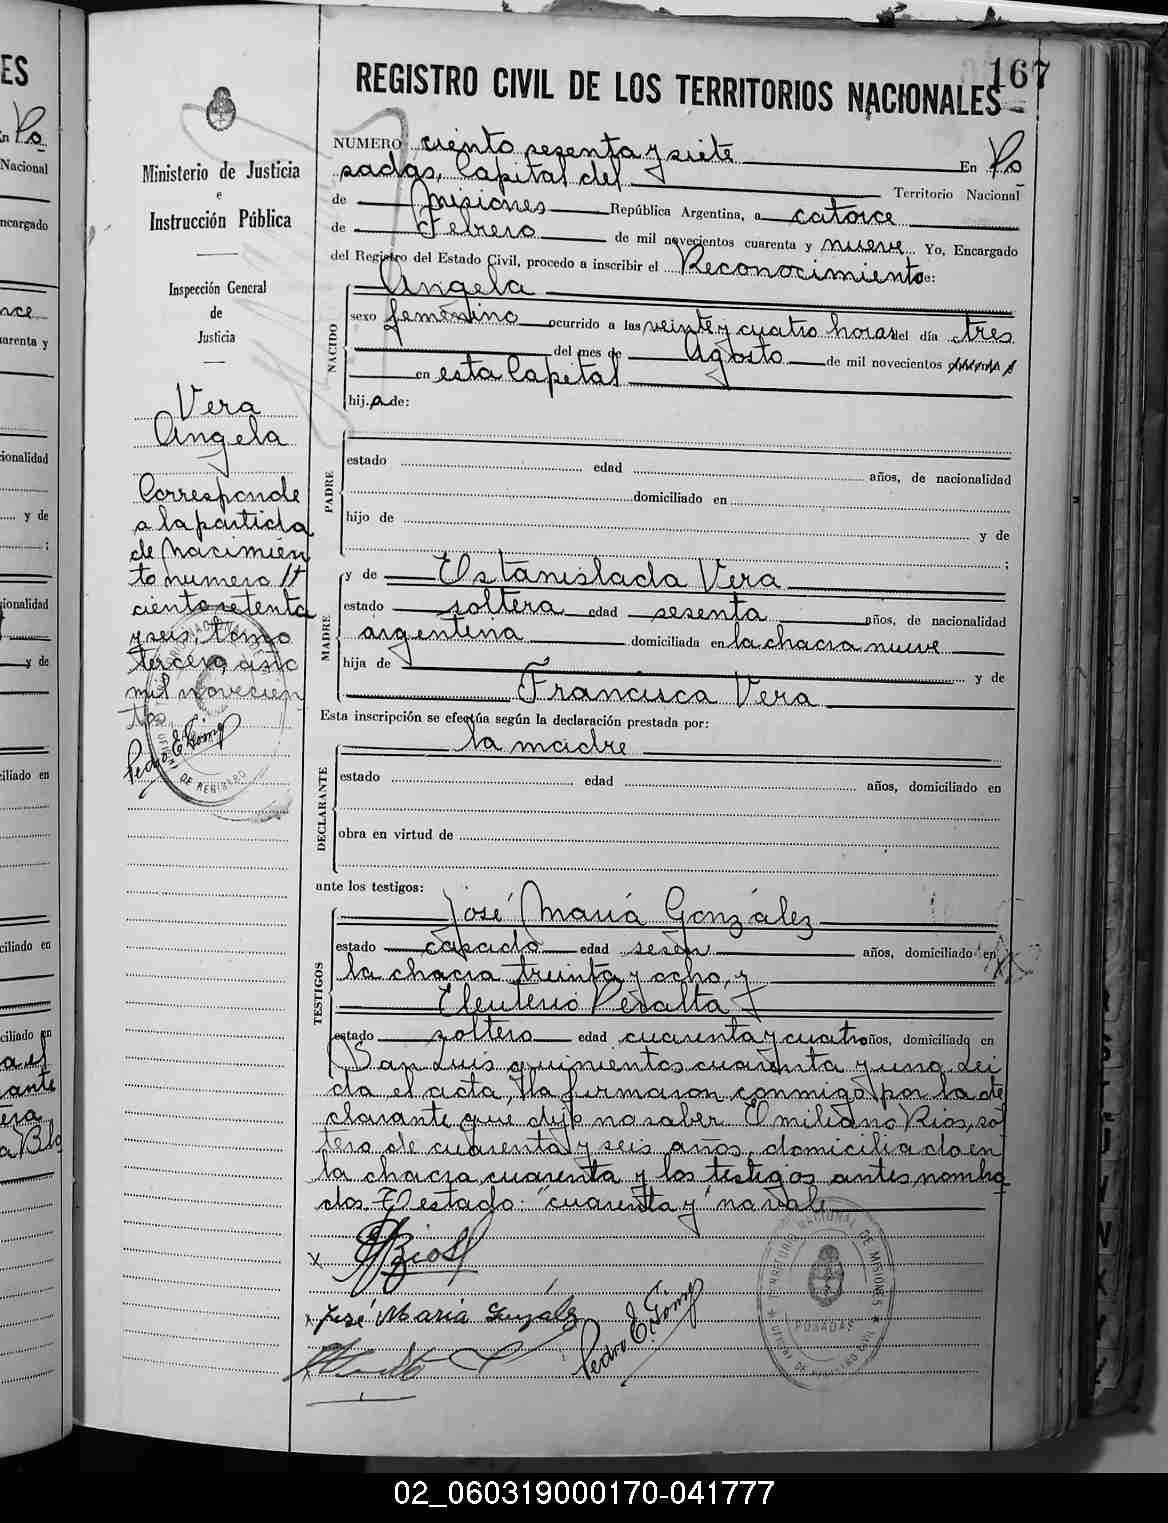 167
REGISTRO CIVIL DE LOS TERRITORIOS NACIONALES
Ministerio de Justicia
e
Instrucción Pública
Inspección General
de
Justicia
Vera
Angela
Corresponde
a la partida
de Nacimien
to numero
ciento setenta
y seis, tomo
tercero año
mil novecien
tos
Pedro E. Gómez
NUMERO ciento sesenta y siete En Po
sadas, Capital del Territorio Nacional
de Misiones República Argentina, a catorce
de Febrero de mil novecientos cuarenta y nueve Yo, Encargado
del Registro del Estado Civil, procedo a inscribir el Reconocimiento de:
NACIDO
Angela
sexo femenino ocurrido a las veinte y cuatro horas del día tres
del mes de Agosto de mil novecientos
en esta Capital
hij.a de:
PADRE
estado edad años, de nacionalidad
domiciliado en
hijo de y de
;
MADRE
y de Estanislada Vera
estado soltera edad sesenta años, de nacionalidad
argentina domiciliada en la chacra nueve
hija de y de
Francisca Vera
Esta inscripción se efectúa según la declaración prestada por:
la madre
DECLARANTE
estado edad años, domiciliado en
obra en virtud de
ante los testigos:
TESTIGOS
José María González
estado casado edad años, domiciliado en
la chacra treinta y ocho, y
Eleuterio Peralta
estado soltero edad cuarenta y cuatro años, domiciliado en
San Luis quinientos cuarenta y uno. Leí
da el acta, la firmaron conmigo por la de
clarante que dijo no saber Emiliano Rios, sol
tero de cuarenta y seis años, domiciliado en
la chacra cuarenta y los testigos antes nombra
dos. El estado: "cuarenta y" no vale
x E Rios
José Maria González
Pedro E. Gómez
OFICINA DE REGISTRO CIVIL
NACIONAL DE MISIONES
POSADAS
02_060319000170-041777